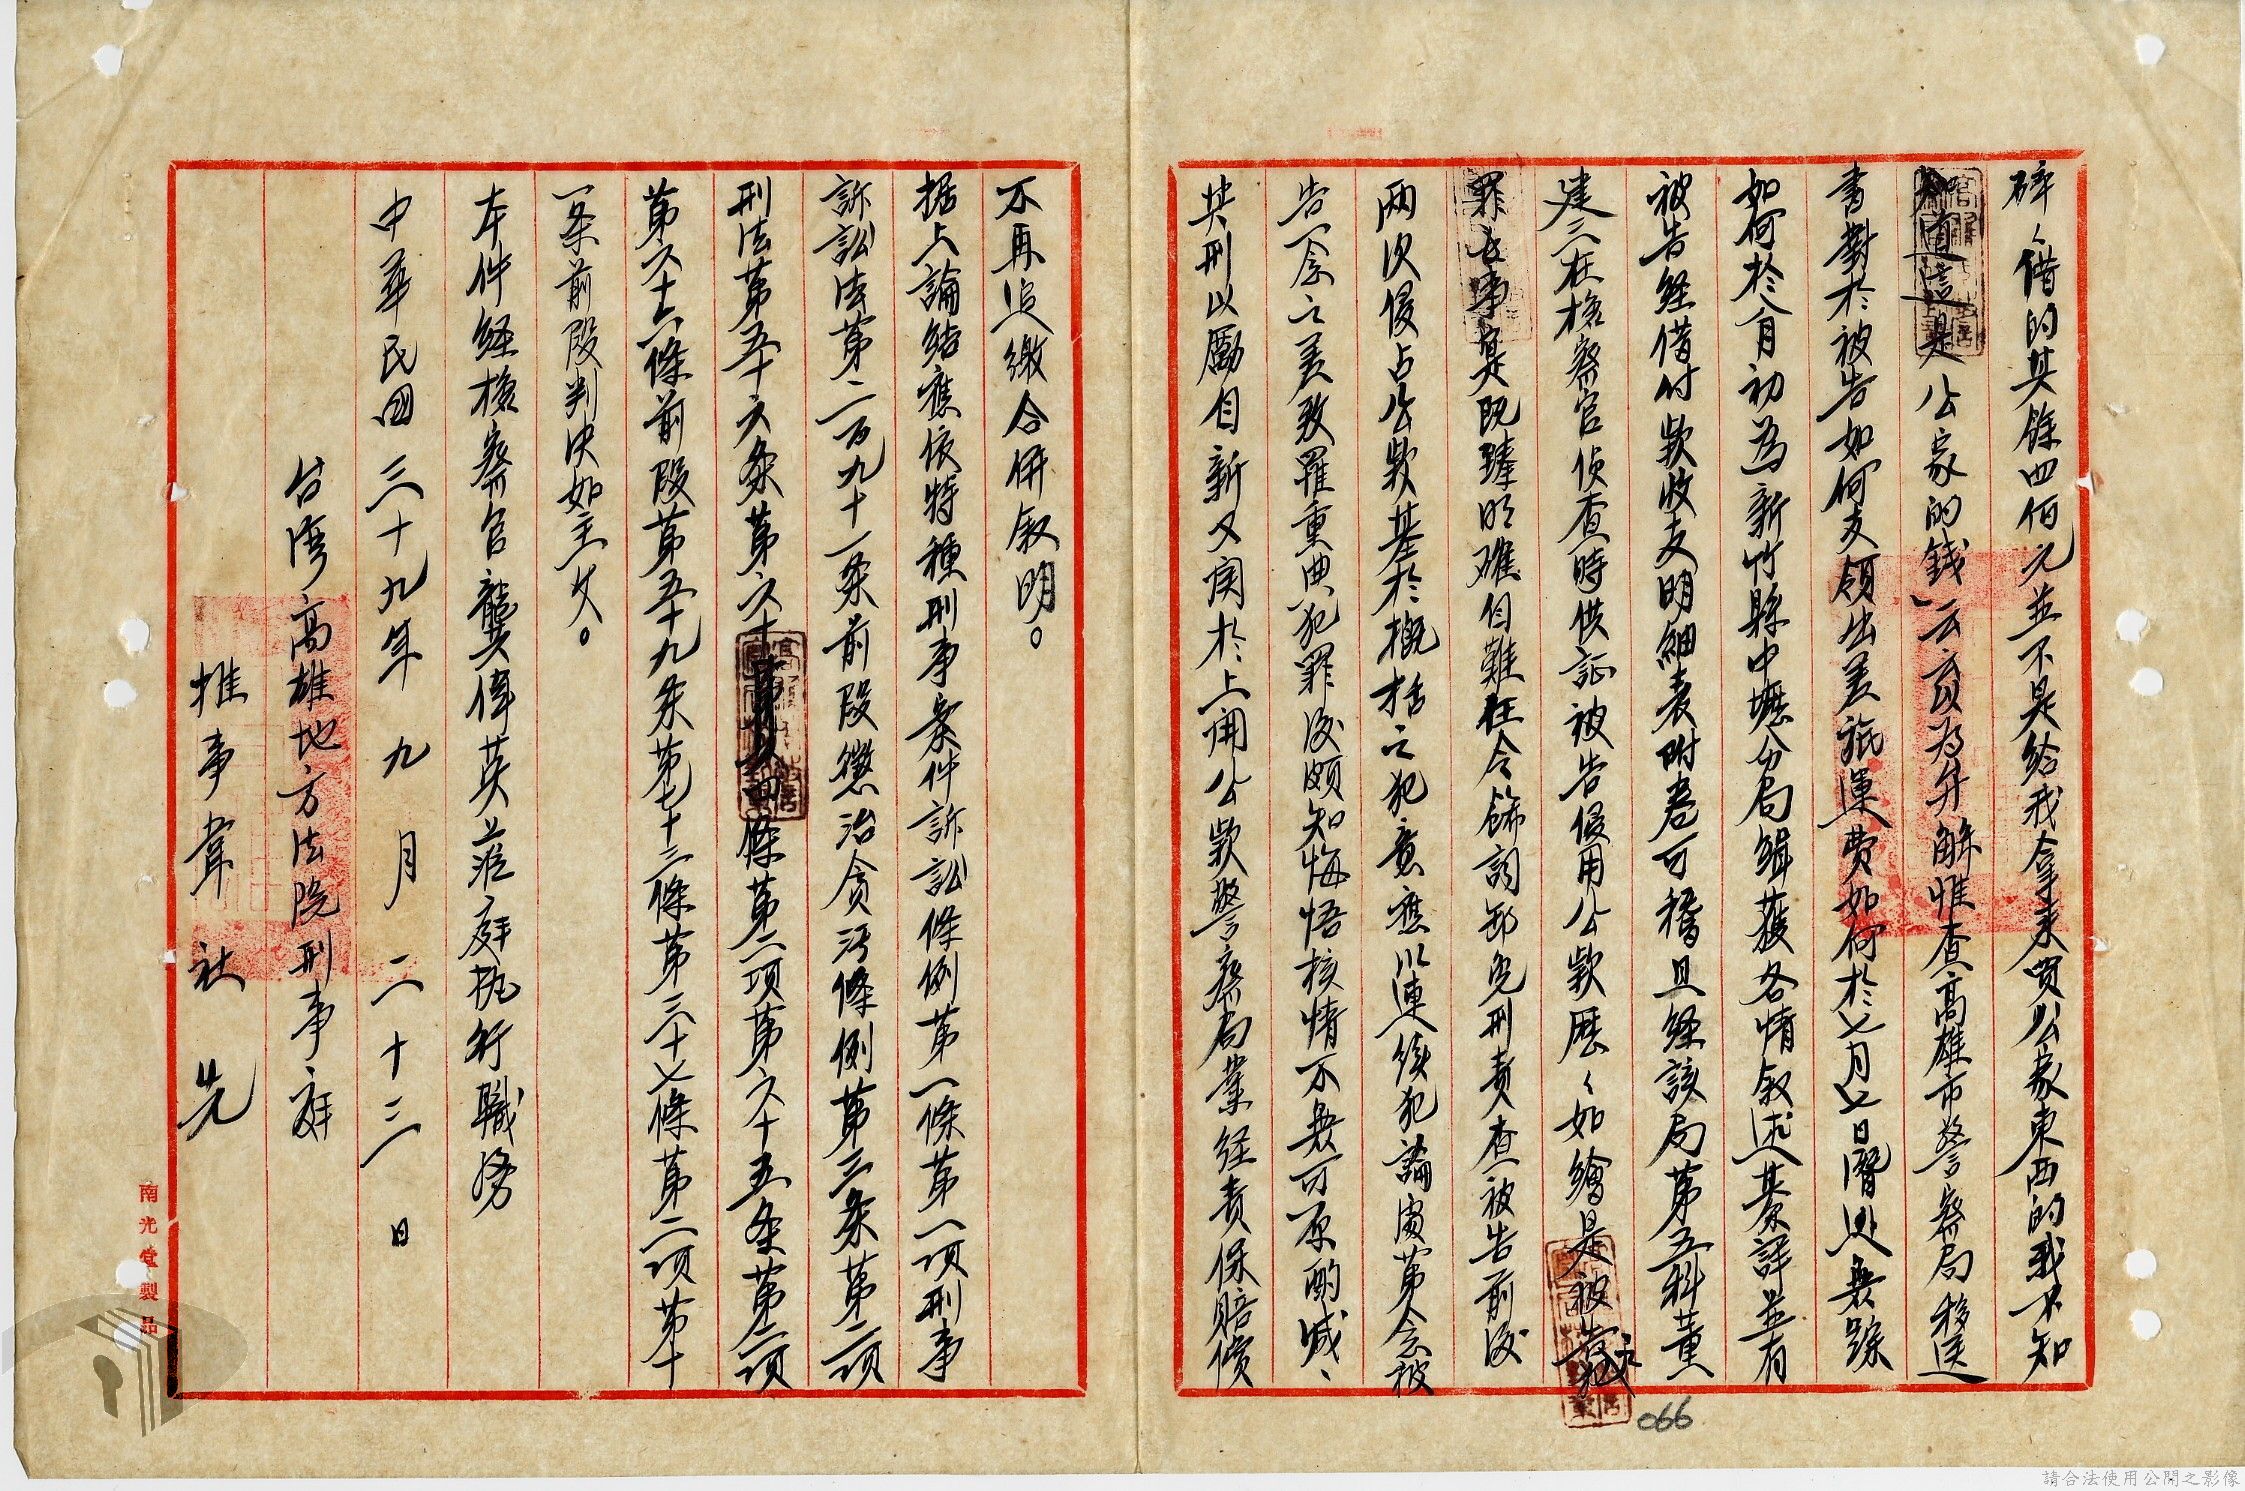 碎々借的其餘四佰元並不是給我拿来買公家東西的我不知
道這是公家的錢」云云以為弁解惟查高雄市警察局移送
書對於被告如何支領出差旅運費如何於七月七日潛逃無踪
如何於八月初為新竹縣中壢分局緝獲各情叙述綦詳並有
被告経借付款收支明細表附卷可稽且経該局第五科董
建三在檢察官偵查時供証被告侵用公款歷々如繪是被告犯
罪事實既臻明確自難任令飾詞卸免刑責查被告前後
両次侵占公款基於概括之犯意應以連續犯論處第念被
告一念之差致罹重典犯罪後頗知悔悟核情不無可原酌减
其刑以勵自新又関於上開公款警察局業経責保賠償
不再追繳合併叙明。
据上論結應依特種刑事案件訴訟條例第一條第一項刑事
訴訟法第二百九十一条前段懲治貪污條例第三条第二項
刑法第五十六条第六十四條第二項第六十五条第二項
第六十六條前段第五十九条第七十三條第三十七條第二項第十
一条前段判决如主文。
本件経檢察官龔偉英蒞庭執行職務
中華民國三十九年九月二十三日
台灣高雄地方法院刑事庭
推事韋社先
南光堂製品
066
請合法使用公開之影像